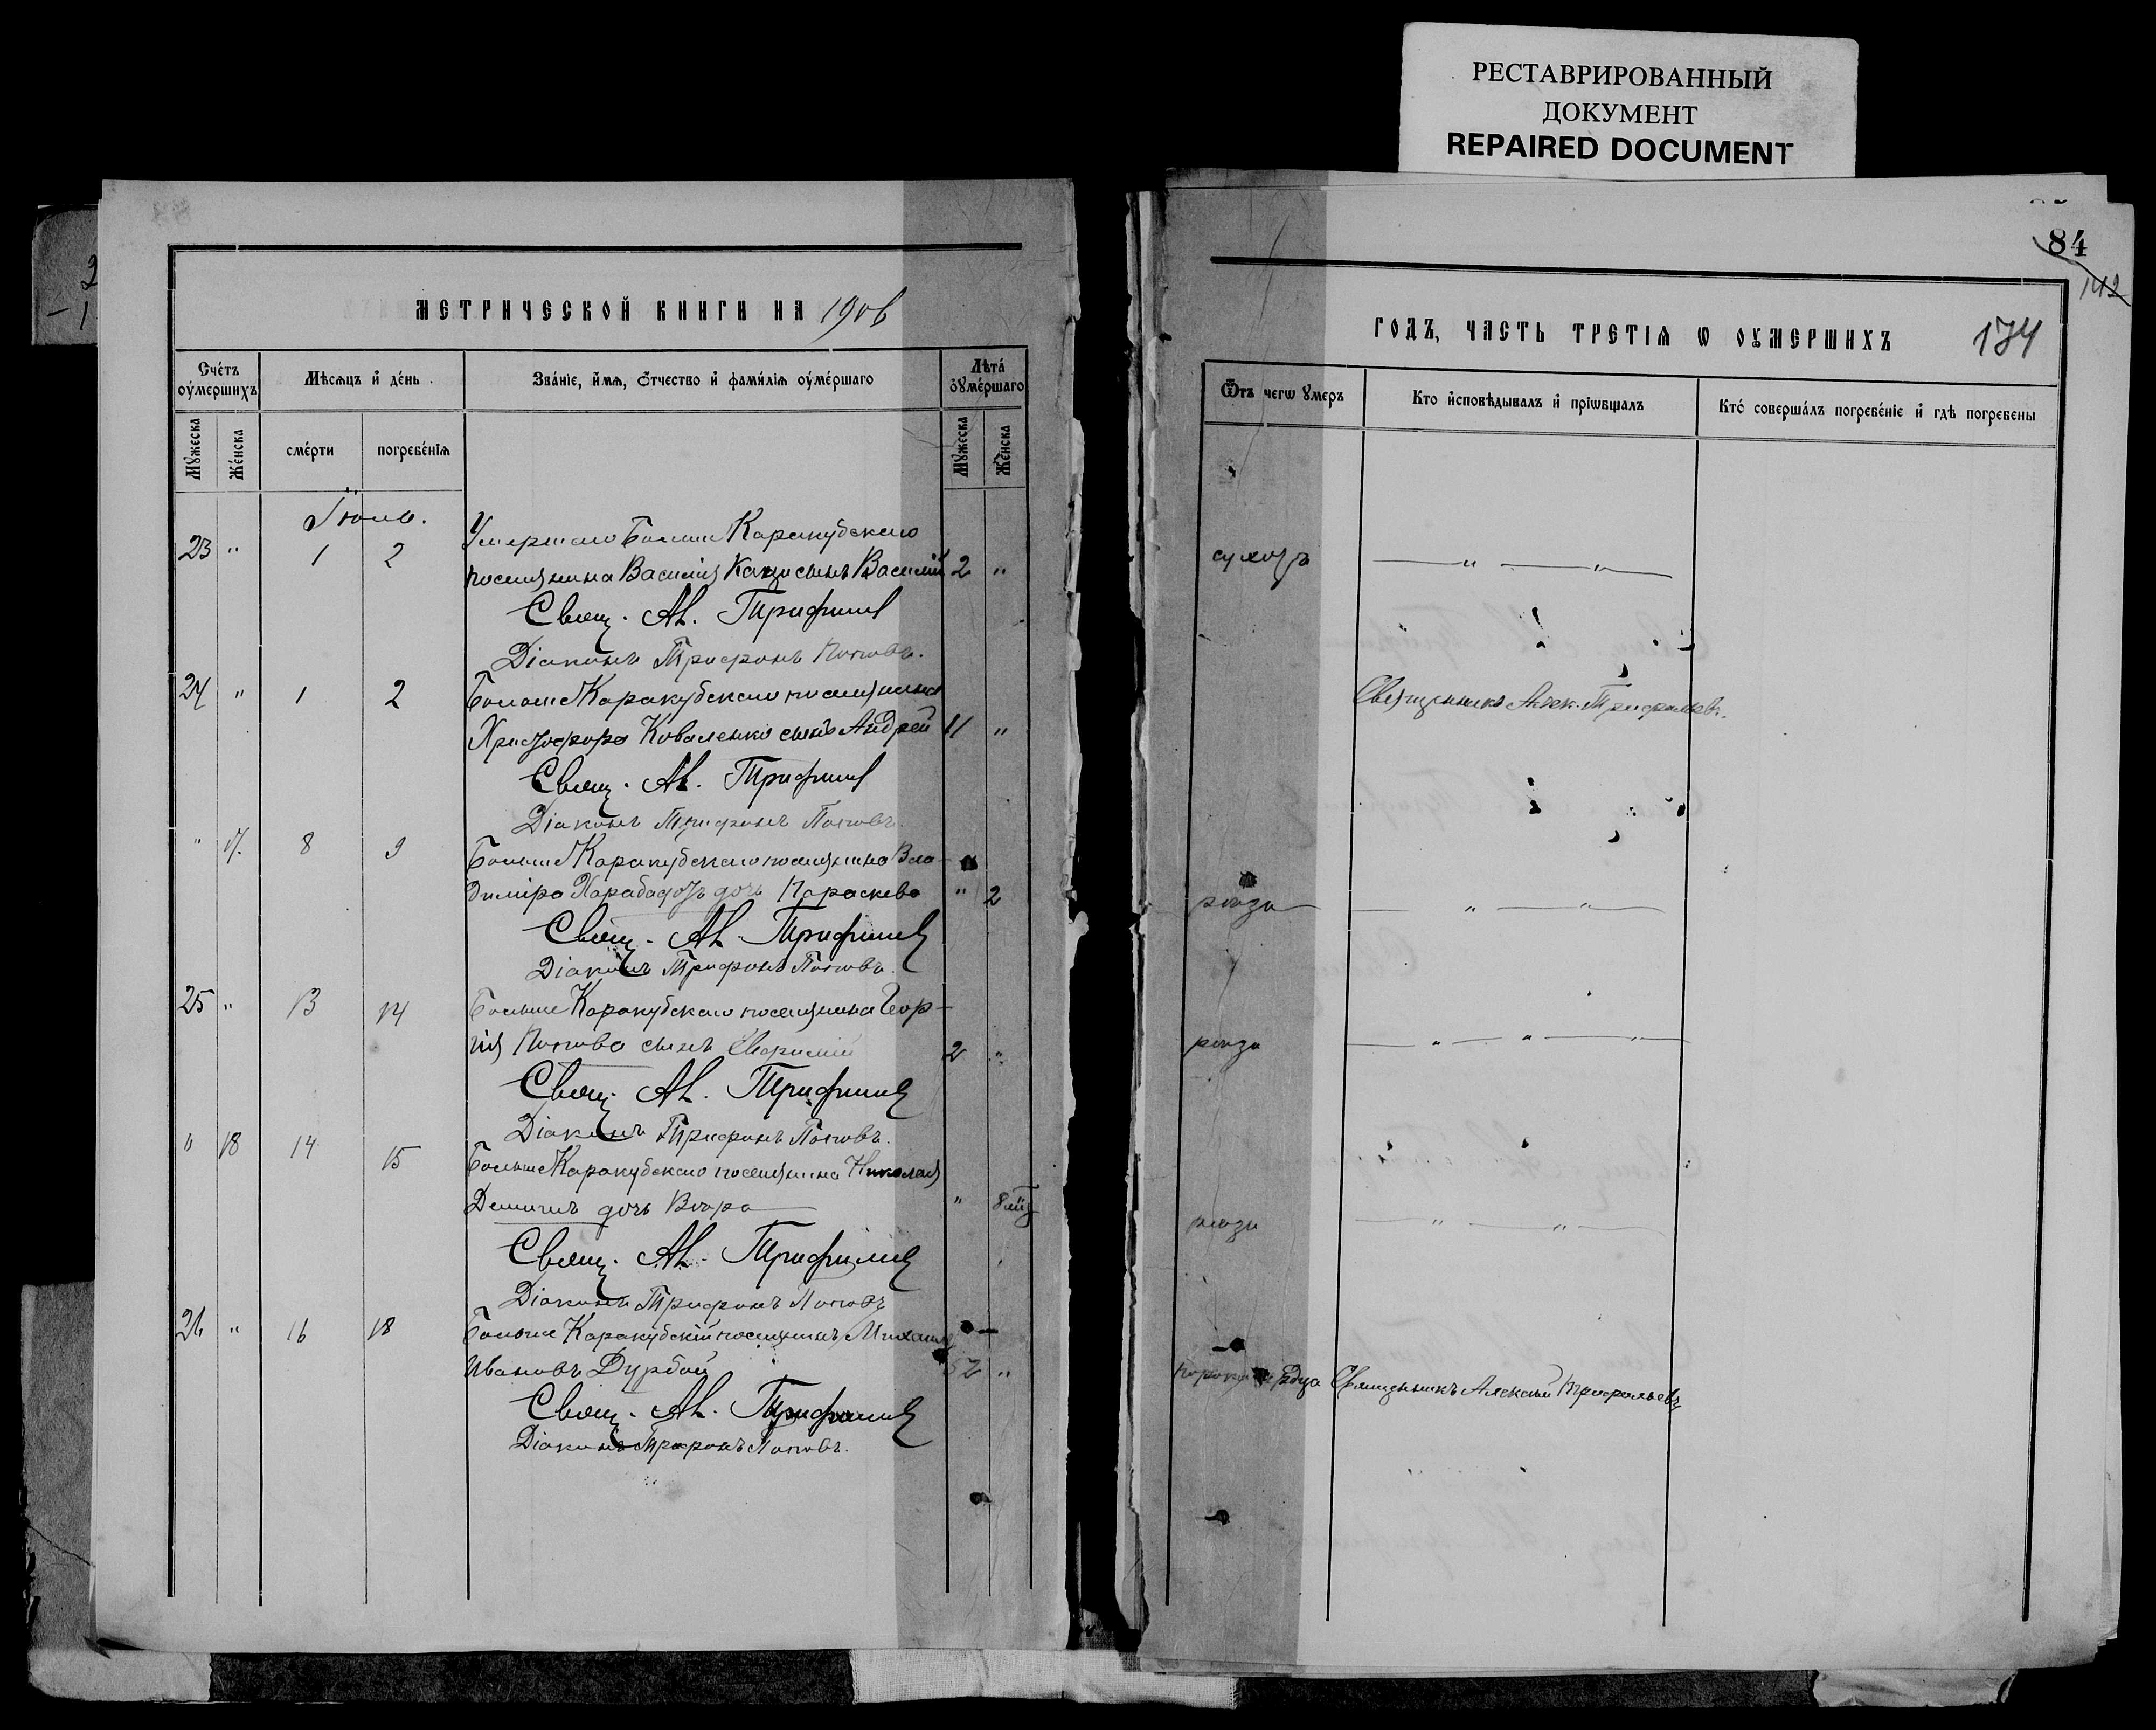 РЕСТАВРИРОВАННЫЙ
ДОКУМЕНТ
REPAIRED DOCUMENT
84
142
174
МЕТРИЧЕСКОЙ КНИГИ НА 1906
Сче́тъ оу҆ме́ршихъ
Мѣсѧцъ и҆ де́нь
Зва́нїе, и҆́мѧ, ѻ҆́тчество и҆ фами́лїѧ оу҆ме́ршаго
Лѣта̀ оу҆ме́ршаго
Мꙋжеска
Же́нска
сме́рти
погребе́нїѧ
Мꙋжеска
Же́нска
Іюль.
23 " 1 2 Умершаго Больше Каракубскаго
поселянина Василія сынъ Василій 2 "
Свящ. Ал. Трифильев
Діаконъ Трифонъ Поповъ.
24 " 1 2 Больше Каракубскаго поселянина
Христофора Коваленко сынъ Андрей 11 "
Свящ. Ал. Трифильев
Діаконъ Трифонъ Поповъ.
" 17. 8 9 Больше Каракубскаго поселянина Вла-
диміра дочь Параскева " 2
Свящ. Ал. Трифильев
Діаконъ Трифонъ Поповъ.
25 " 13 14 Больше Каракубскаго поселянина Геор-
гія Попова сынъ 2 "
Свящ. Ал. Трифильев
Діаконъ Трифонъ Поповъ.
" 18 14 15 Больше Каракубскаго поселянина Николая
дочь Вѣра " 8
Свящ. Ал. Трифильев
Діаконъ Трифонъ Поповъ
26 " 16 18 Больше Каракубскій поселянинъ Михаилъ
Ивановъ Дурбай 52 "
Свящ. Ал. Трифильев
Діаконъ Трифонъ Поповъ.
ГОДЪ, ЧАСТЬ ТРЕТІѦ Ѡ ОУМЕРШИХЪ
Ѿтъ чегѡ ꙋмеръ
Кто и҆сповѣдывалъ и҆ прїѡбщалъ
Кто́ соверша́лъ погребе́нїе и҆ гдѣ погребены
" "
Священникъ Алек. Трифильевъ.
" "
" " "
" "
Священникъ Алексій Трифильевъ